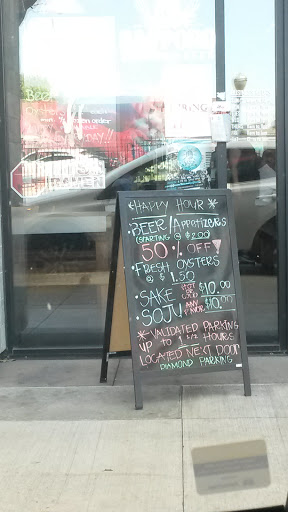 * HAPPY HOUR *
• BEER / Appetizers
(STARTING @ $2.00)
50% OFF!
• FRESH OYSTERS
@ $1.50
• SAKE HOT OR COLD $10.00
• SOJU ANY FLAVOR $10.00
* VALIDATED PARKING
UP TO 1 1/2 HOURS
LOCATED NEXT DOOR
DIAMOND PARKING